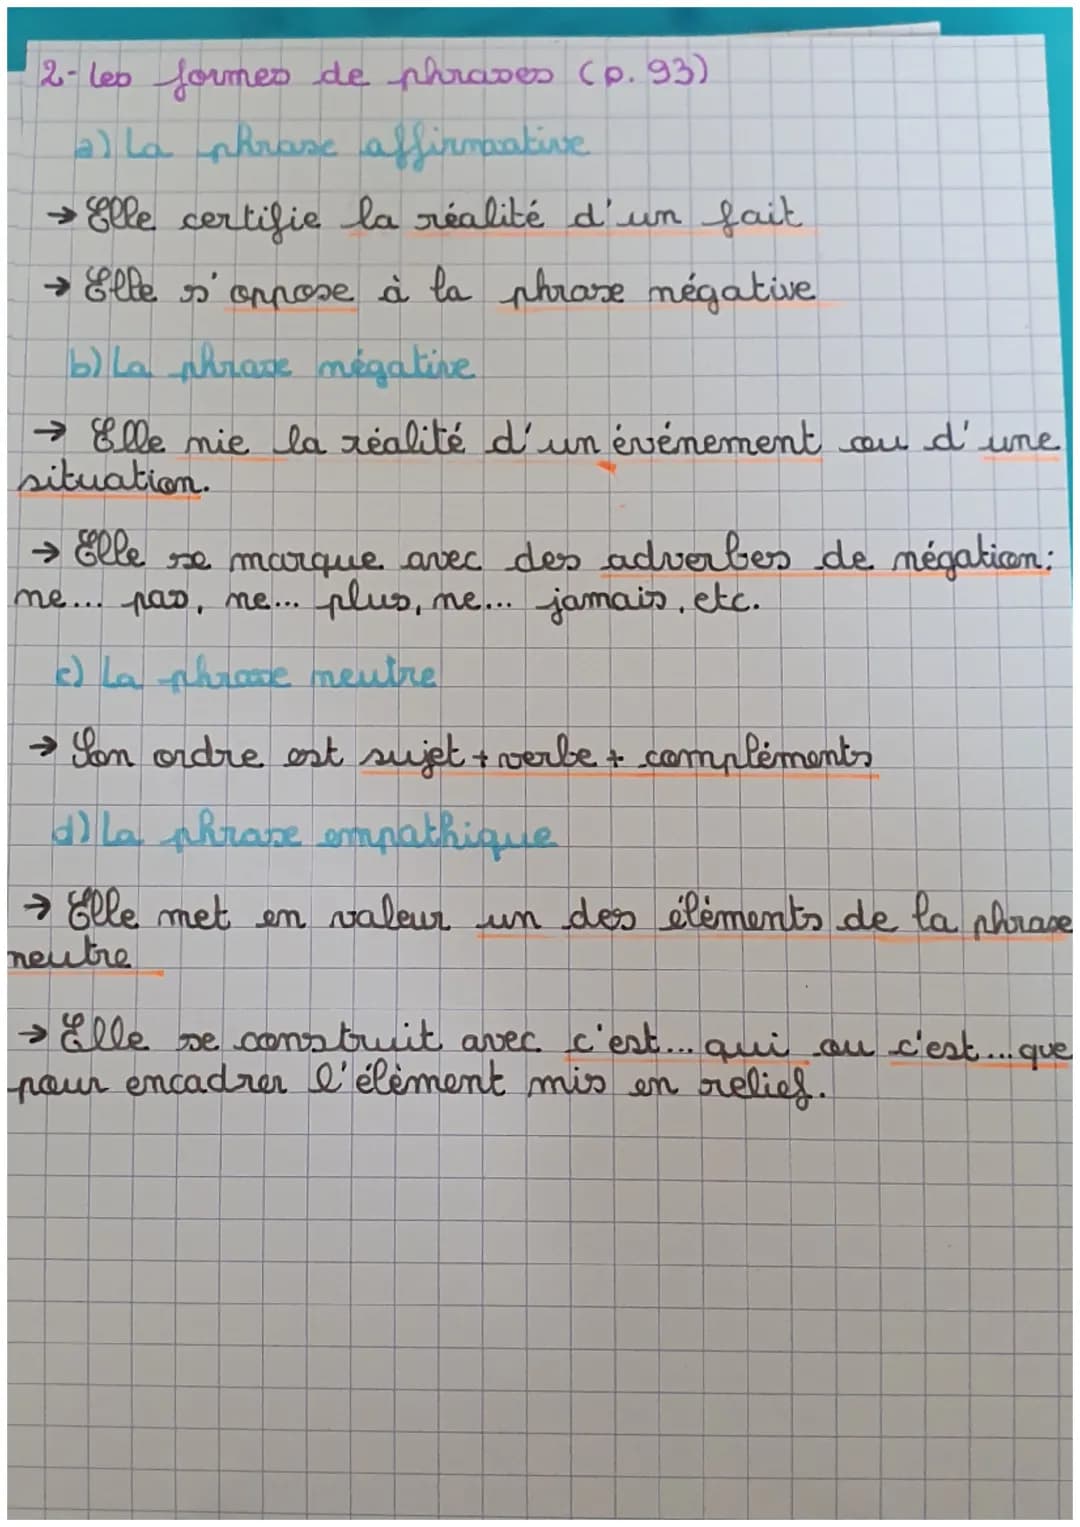 2- les formes de phrases (p. 93)
a) La phrase affirmative
→ Elle certifie la réalité d'un fait
→ Elle s'oppose à la phrase négative
b) La phrase négative
→ Elle nie la réalité d'un événement ou d'une
situation.
→ Elle se marque avec des adverbes de négation:
ne... pas, ne... plus, ne... jamais, etc.
c) La phrase neutre
→ Son ordre est sujet + verbe + compléments
d) La phrase empathique
→ Elle met en valeur un des éléments de la phrase
neutre
→ Elle se construit avec c'est... qui ou c'est... que
pour encadrer l'élément mis en relief.